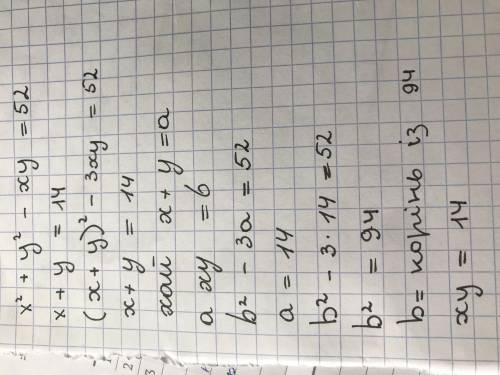 x² + y² - xy = 52
x + y = 14
(x + y)² - 3xy = 52
x + y = 14
хай x + y = a
а xy = б
b² - 3a = 52
a = 14
b² - 3 · 14 = 52
b² = 94
b = корінь із 94
xy = 14